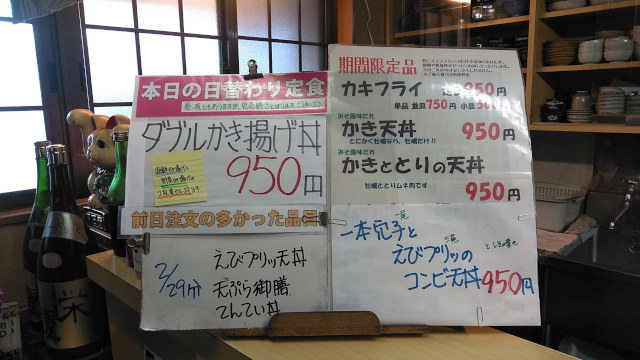 本日の日替わり定食
ダブルかき揚げ丼
950円
前日注文の多かった品目
2/29分
えびプリッ天丼
天ぷら御膳
てんてい丼
期間限定品
カキフライ
定食950円
単品 並皿750円 小皿500円
みそ風味だれ
かき天丼
950円
とにかく牡蠣なら、牡蠣だけ!!
みそ風味だれ
かきととりの天丼
牡蠣ととりムネ肉です
950円
一本穴子と
二尾
えびプリッの
コンビ天丼
950円
栄